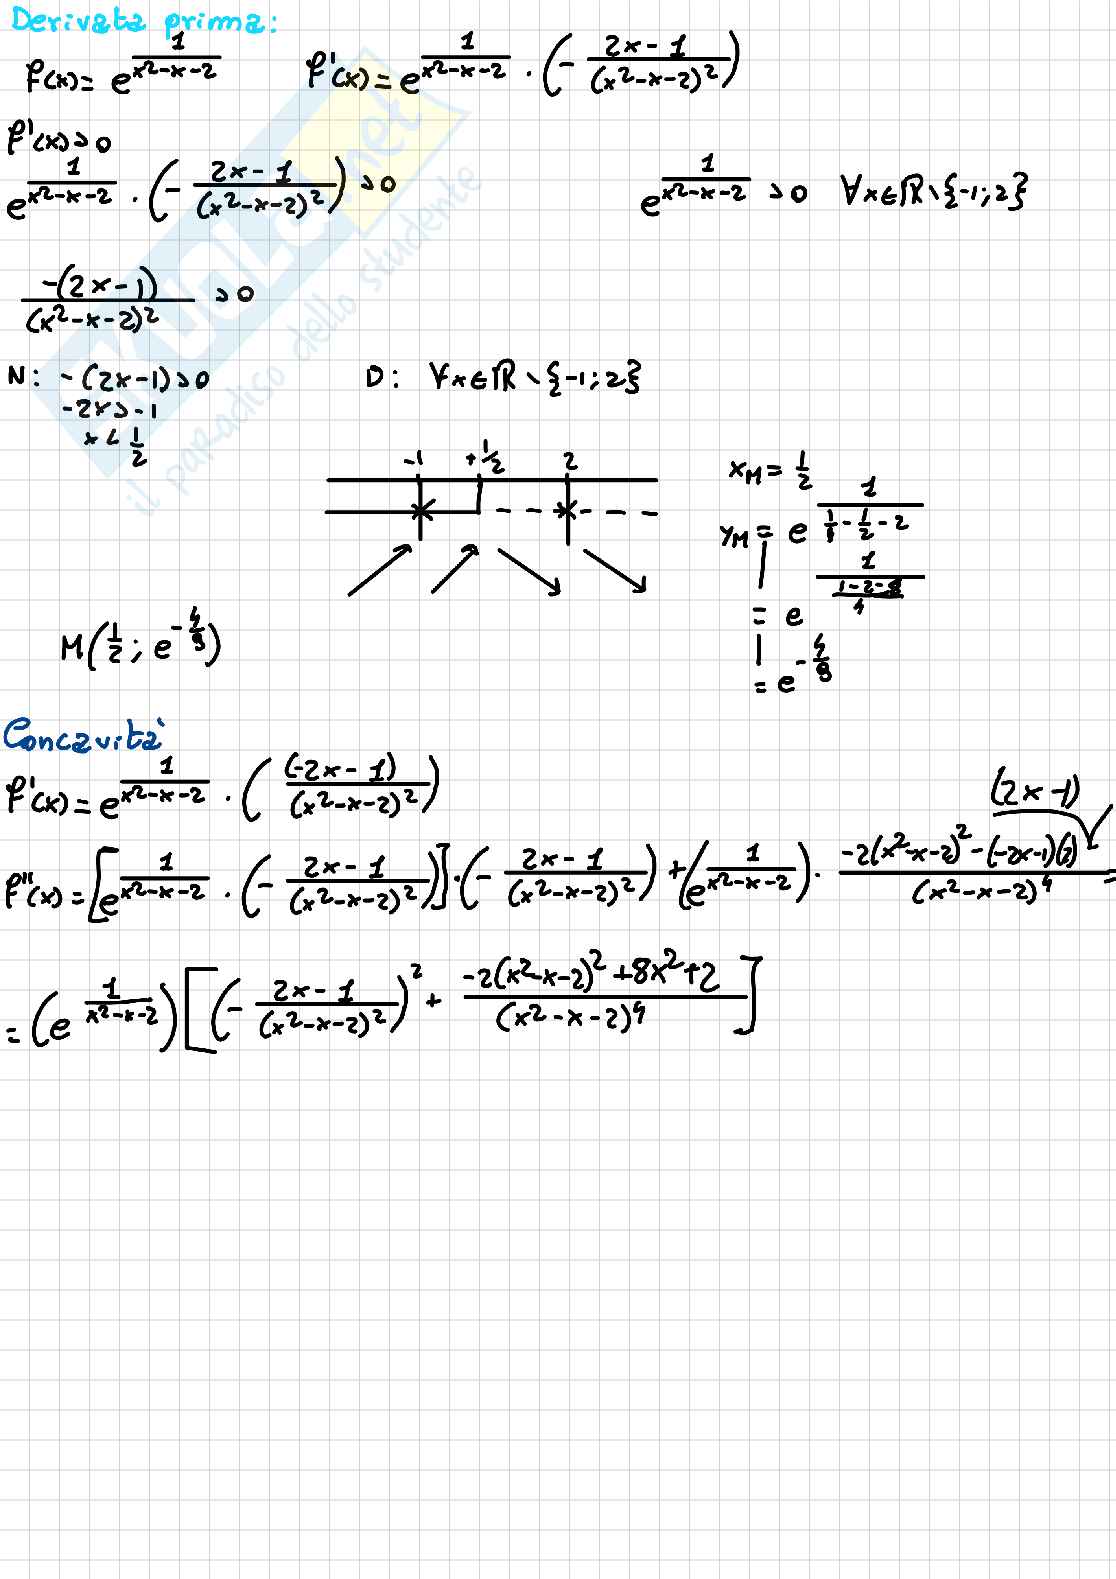 Derivata prima:
f(x) = e^(1/(x²-x-2))   f'(x) = e^(1/(x²-x-2)) · (- (2x-1)/(x²-x-2)²)
f'(x) > 0
e^(1/(x²-x-2)) · (- (2x-1)/(x²-x-2)²) > 0   e^(1/(x²-x-2)) > 0 ∀x∈ℝ∖{-1;2}
-(2x-1)/(x²-x-2)² > 0
N: -(2x-1) > 0   D: ∀x∈ℝ∖{-1;2}
-2x > -1
x < 1/2
-1 +1/2 2
x_M = 1/2
y_M = e^(1/(1/4 - 1/2 - 2))
= e^(1/((1-2-8)/4))
= e^(-4/9)
M(1/2; e^(-4/9))
Concavità
f'(x) = e^(1/(x²-x-2)) · ((-2x-1)/(x²-x-2)²)
(2x-1)
f''(x) = [e^(1/(x²-x-2)) · (- (2x-1)/(x²-x-2)²)] · (- (2x-1)/(x²-x-2)²) + (e^(1/(x²-x-2))) · (-2(x²-x-2)² - (-2x-1)(2))/(x²-x-2)⁴ =
= (e^(1/(x²-x-2))) [(- (2x-1)/(x²-x-2)²)² + (-2(x²-x-2)² + 8x² + 2)/(x²-x-2)⁴]
SKUOLA.net
il paradiso dello studente